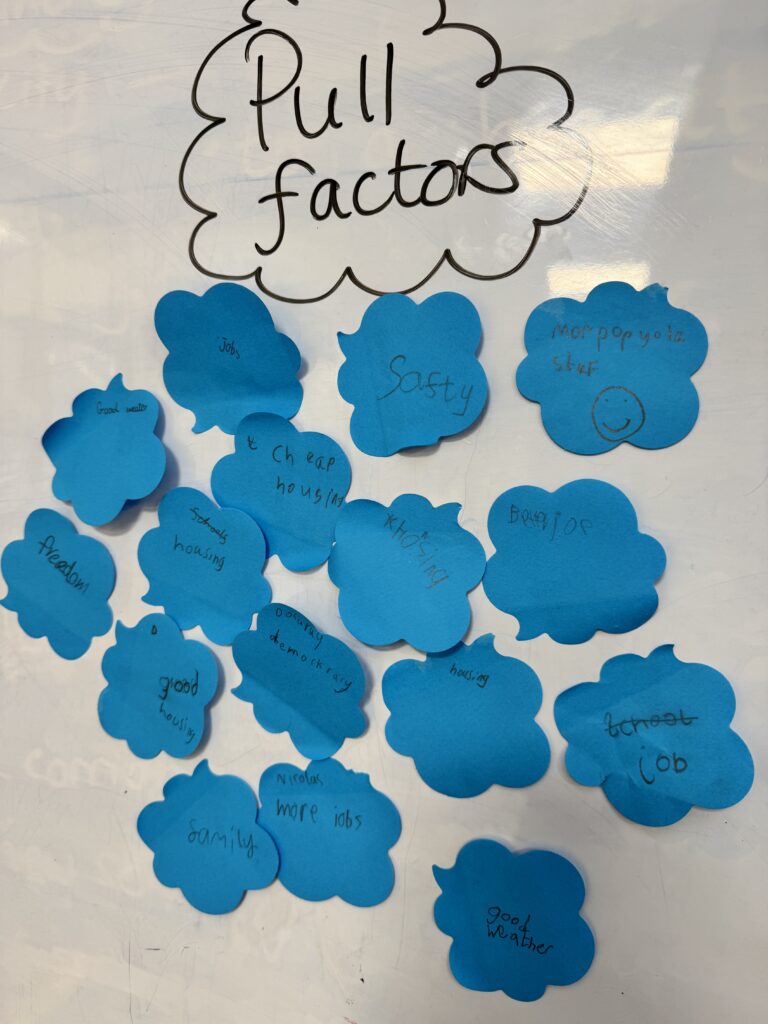 Pull
factors
Jobs
Safty
Mor popyola
stuf
Good weater
Cheap
housing
freedom
schools
housing
housing
job
good
housing
demockracy
housing
school
job
family
Nicolas
more jobs
good
weather